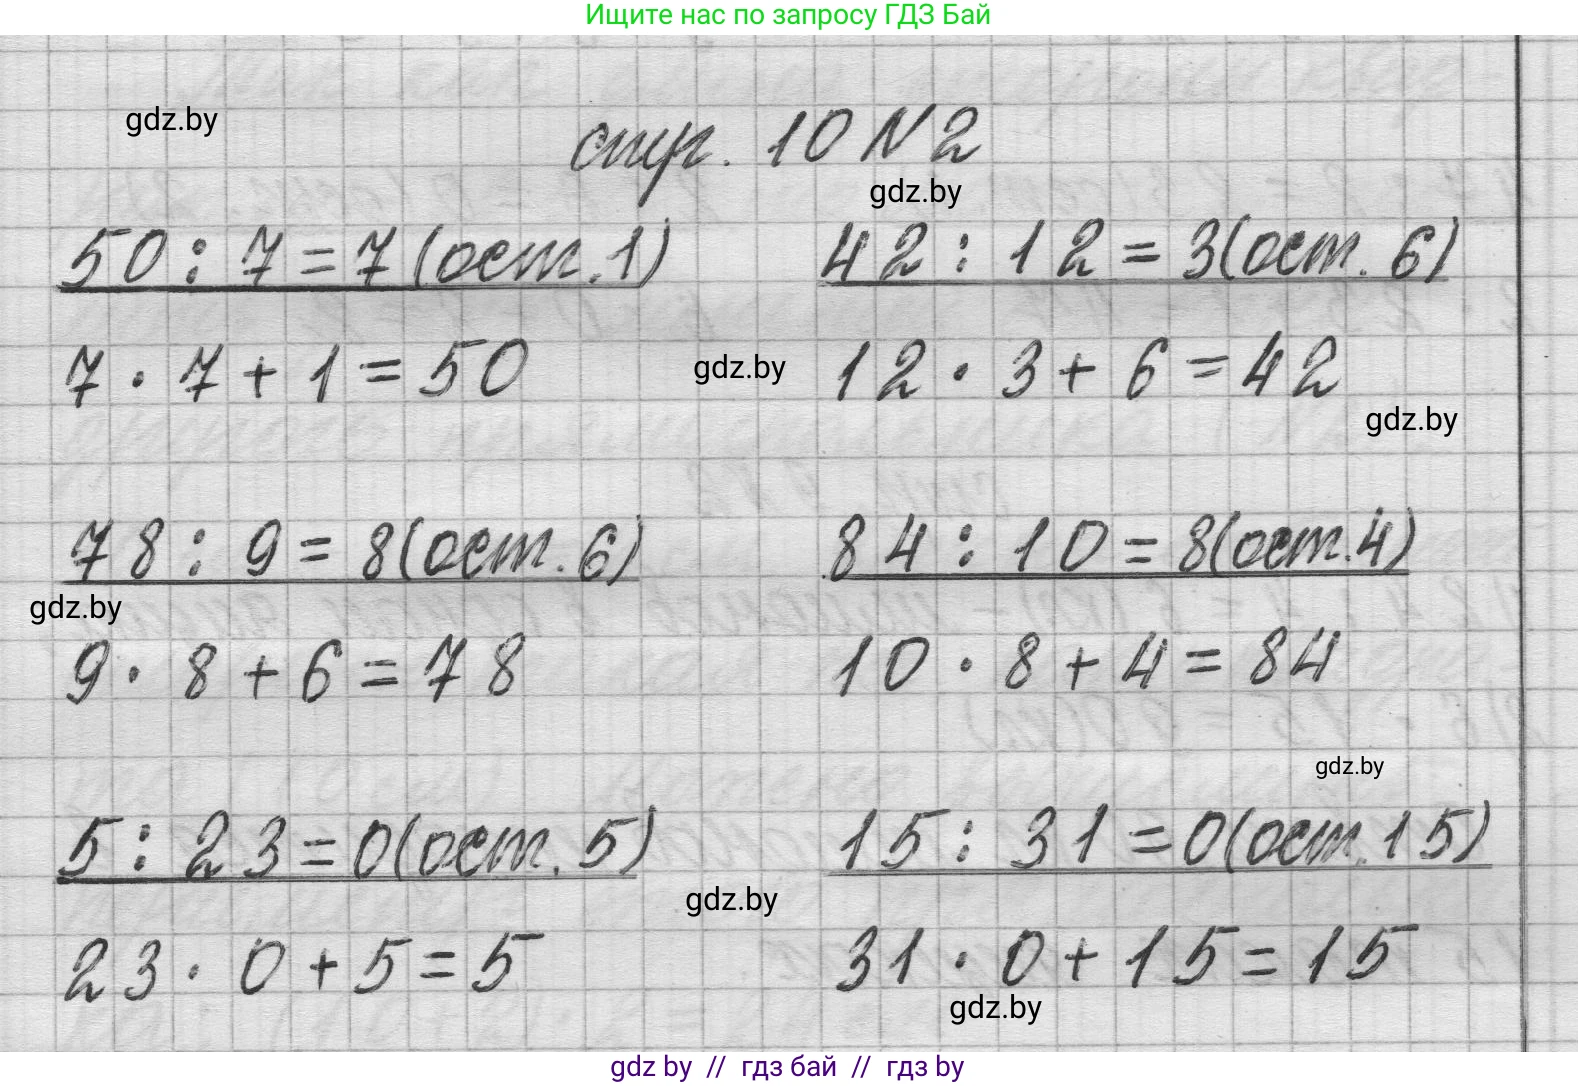 Ищите нас по запросу ГДЗ Бай
gdz.by
стр. 10 N 2
gdz.by
50 : 7 = 7 (ост. 1) 42 : 12 = 3 (ост. 6)
7 · 7 + 1 = 50 gdz.by 12 · 3 + 6 = 42
gdz.by
78 : 9 = 8 (ост. 6) 84 : 10 = 8 (ост. 4)
gdz.by
9 · 8 + 6 = 78 10 · 8 + 4 = 84
gdz.by
5 : 23 = 0 (ост. 5) 15 : 31 = 0 (ост. 15)
gdz.by
23 · 0 + 5 = 5 31 · 0 + 15 = 15
gdz.by
gdz by // гдз бай // гдз by